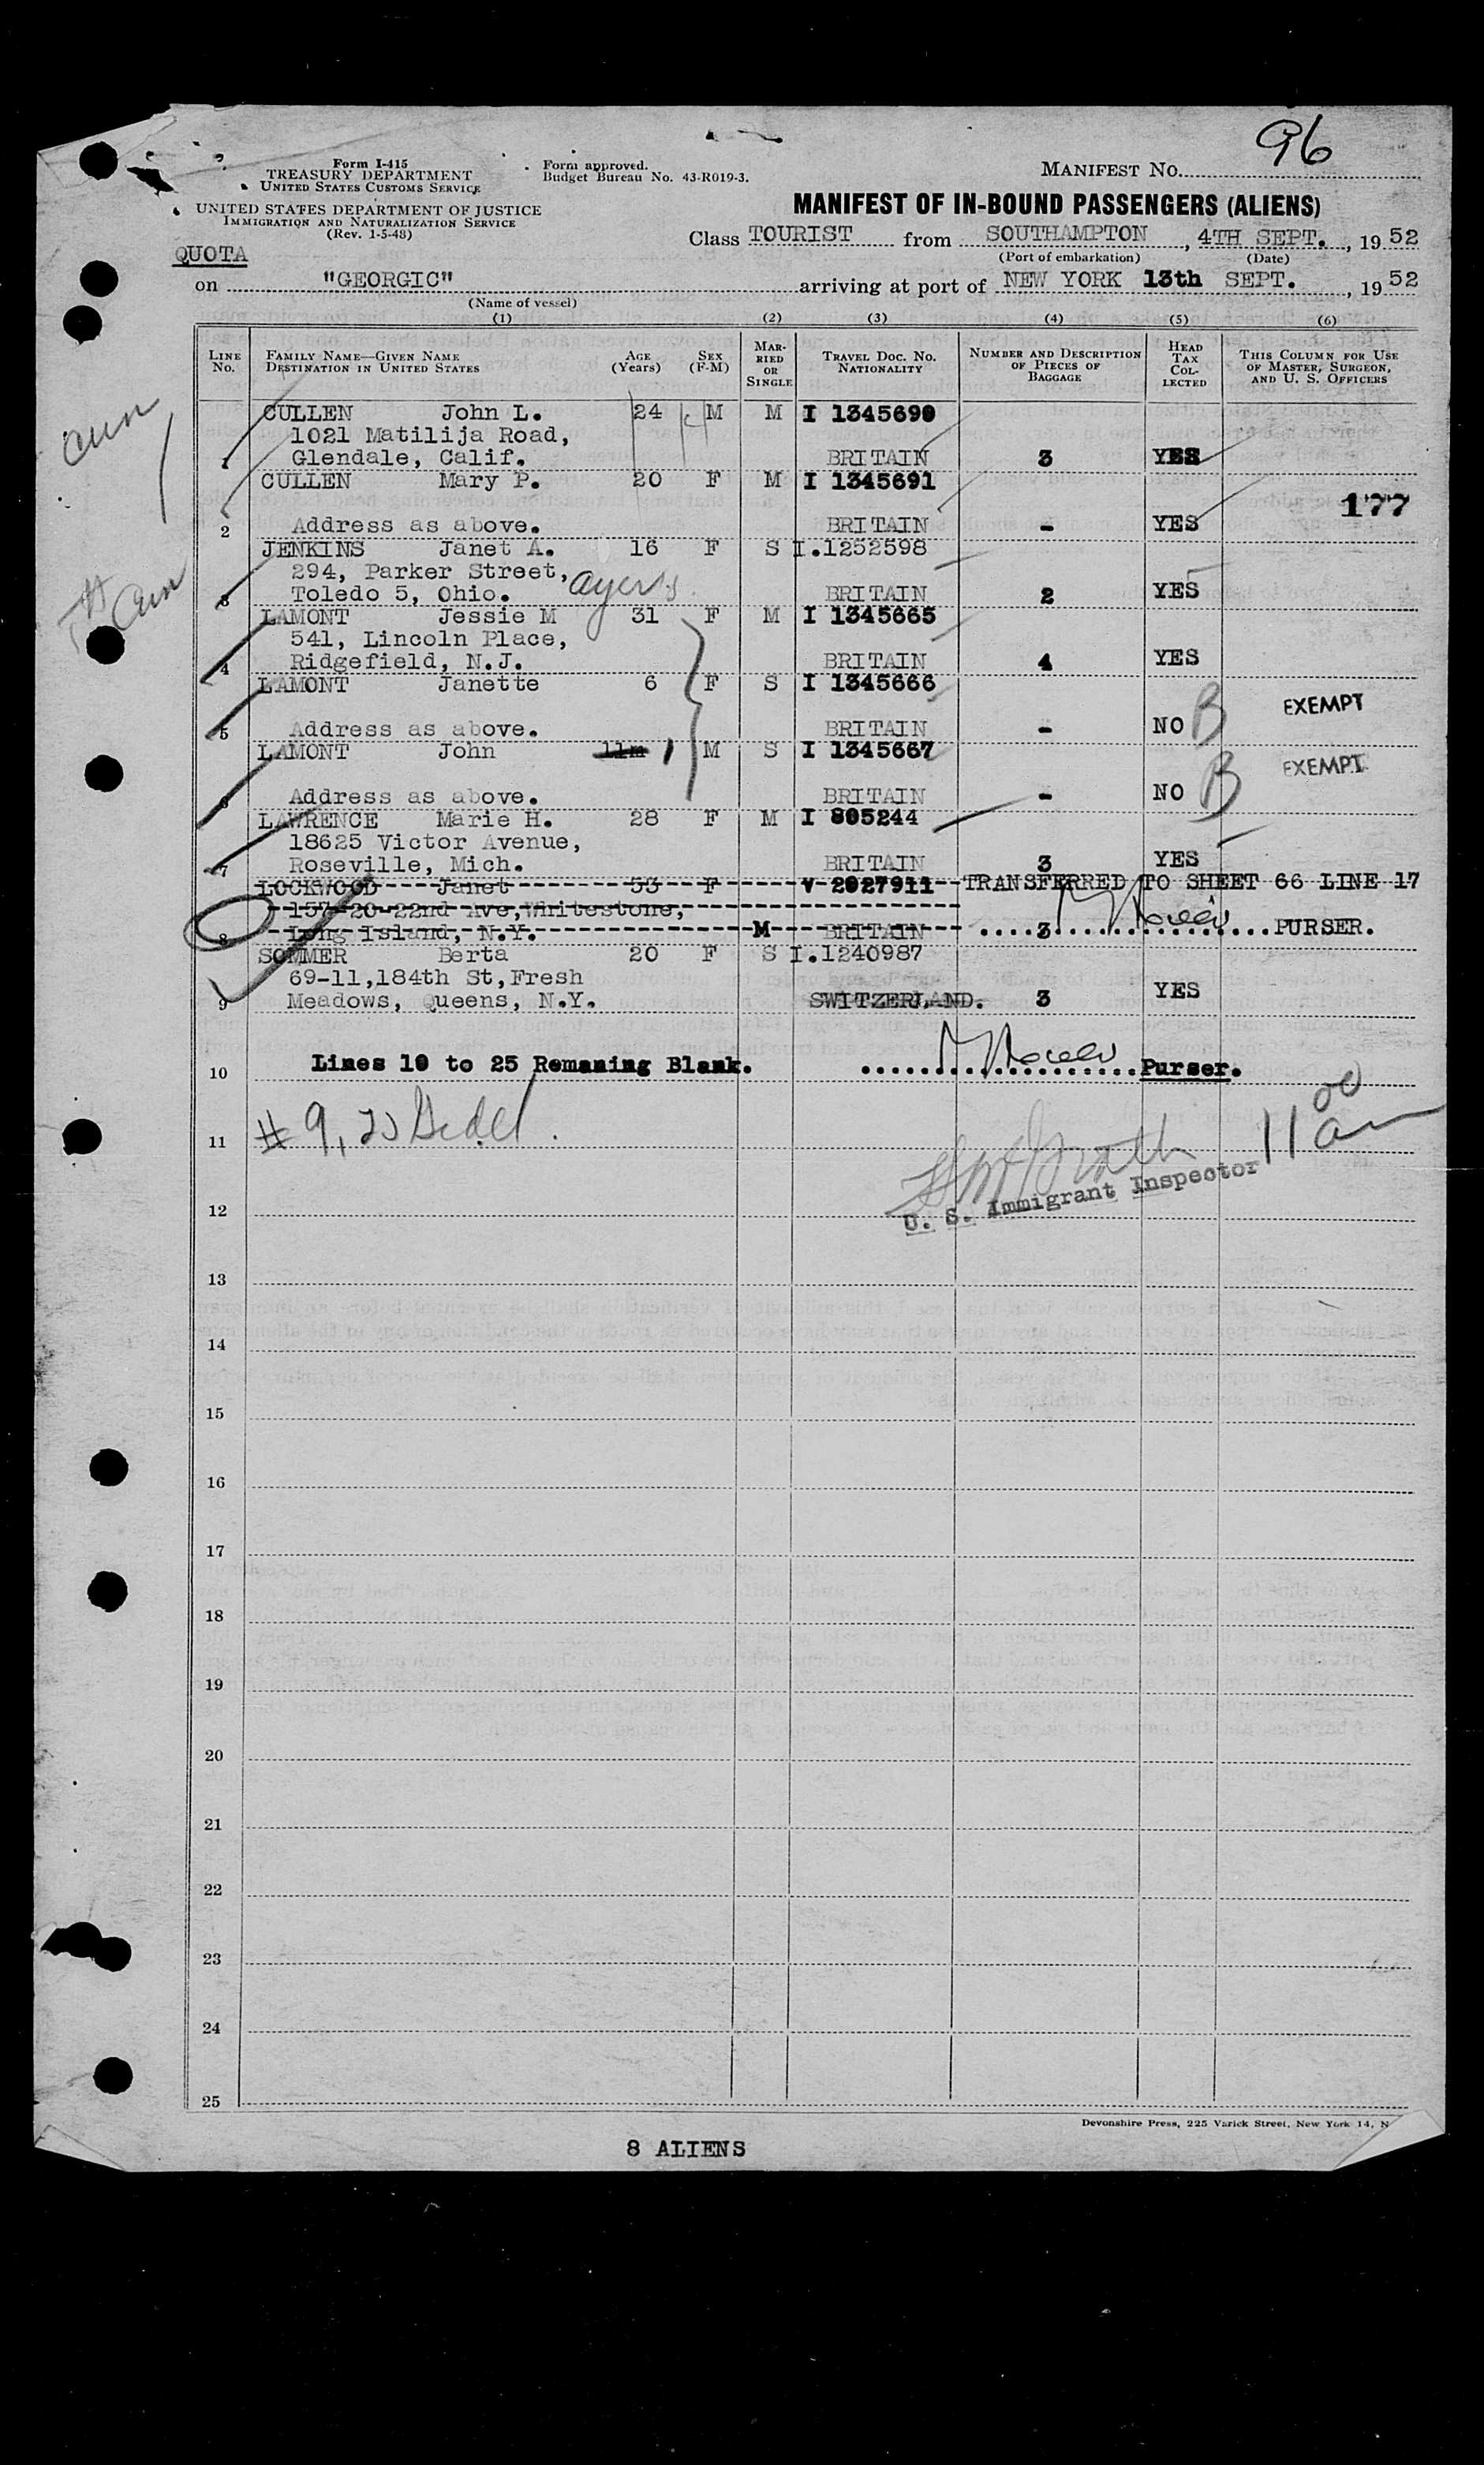 96
Form I-415
TREASURY DEPARTMENT
UNITED STATES CUSTOMS SERVICE
Form approved.
Budget Bureau No. 43-R019-3.
MANIFEST No.
UNITED STATES DEPARTMENT OF JUSTICE
IMMIGRATION AND NATURALIZATION SERVICE
(Rev. 1-5-48)
MANIFEST OF IN-BOUND PASSENGERS (ALIENS)
Class TOURIST from SOUTHAMPTON, 4TH SEPT., 1952
(Port of embarkation) (Date)
QUOTA
on "GEORGIC" arriving at port of NEW YORK 13th SEPT., 1952
(Name of vessel)
(1) (2) (3) (4) (5) (6)
LINE No. FAMILY NAME—GIVEN NAME DESTINATION IN UNITED STATES AGE (Years) SEX (F-M) MARRIED OR SINGLE TRAVEL DOC. NO. NATIONALITY NUMBER AND DESCRIPTION OF PIECES OF BAGGAGE HEAD TAX COLLECTED THIS COLUMN FOR USE OF MASTER, SURGEON, AND U. S. OFFICERS
CULLEN John L. 24 M M I 1345690
1021 Matilija Road,
1 Glendale, Calif. BRITAIN 3 YES
CULLEN Mary P. 20 F M I 1345691
177
2 Address as above. BRITAIN - YES
JENKINS Janet A. 16 F S I.1252598
294, Parker Street,
3 Toledo 5, Ohio. Ayers BRITAIN 2 YES
LAMONT Jessie M 31 F M I 1345665
541, Lincoln Place,
4 Ridgefield, N.J. BRITAIN 4 YES
LAMONT Janette 6 F S I 1345666
EXEMPT
5 Address as above. BRITAIN - NO B
LAMONT John 11m 1 M S I 1345667
EXEMPT
6 Address as above. BRITAIN - NO B
LAWRENCE Marie H. 28 F M I 805244
18625 Victor Avenue,
7 Roseville, Mich. BRITAIN 3 YES
LOCKWOOD Janet 53 F V 2027911 TRANSFERRED TO SHEET 66 LINE 17
157-20-22nd Ave, Whitestone,
8 Long Island, N.Y. M BRITAIN 3 PURSER.
SOMMER Berta 20 F S I.1240987
69-11,184th St,Fresh
9 Meadows, Queens, N.Y. SWITZERLAND. 3 YES
10 Lines 10 to 25 Remaning Blank. Purser.
11 # 9, 11 00 am
U. S. Immigrant Inspector
12
13
14
15
16
17
18
19
20
21
22
23
24
25
Devonshire Press, 225 Varick Street, New York 14, N
8 ALIENS